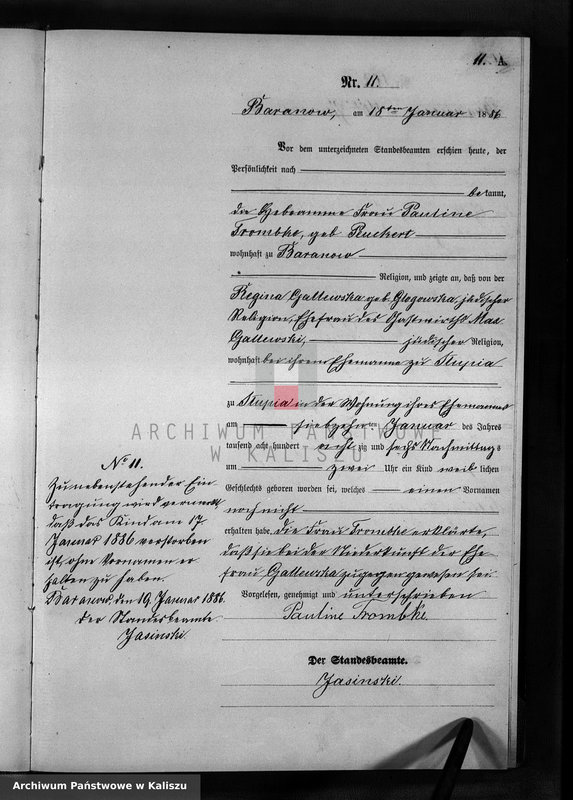 11. A.
Nr. 11.
Baranow, am 18ten Januar 1886
Vor dem unterzeichneten Standesbeamten erschien heute, der
Persönlichkeit nach
bekannt,
die Hebeamme Frau Pauline
Trombke, geb
wohnhaft zu Baranow
Religion, und zeigte an, daß von der
Regina Gallewska geb Glogowska, jüdischer
Religion, Ehefrau des Gastwirths Max
Gallewski, jüdischer Religion,
wohnhaft bei ihrem Ehemanne zu Slupia
zu Slupia in der Wohnung ihres Ehemannes
am siebzehnten Januar des Jahres
tausend acht hundert achtzig und sechs Nachmittags
um zwei Uhr ein Kind weiblichen
Geschlechts geboren worden sei, welches einen Vornamen
noch nicht
erhalten habe. Die Frau Trombke erklärte,
daß sie bei der Niederkunft der Ehe
frau Gallewska zugegen gewesen sei
Vorgelesen, genehmigt und unterschrieben
Pauline Trombke.
Der Standesbeamte.
Jasinski.
No 11.
Zu nebenstehender Ein
tragung wird vermerkt
daß das Kind am 17
Januar 1886 verstorben
ist, ohne Vornamen er
halten zu haben.
Baranow, den 19. Januar 1886.
Der Standesbeamte
Jasinski
ARCHIWUM PAŃSTWOWE
W KALISZU
Archiwum Państwowe w Kaliszu